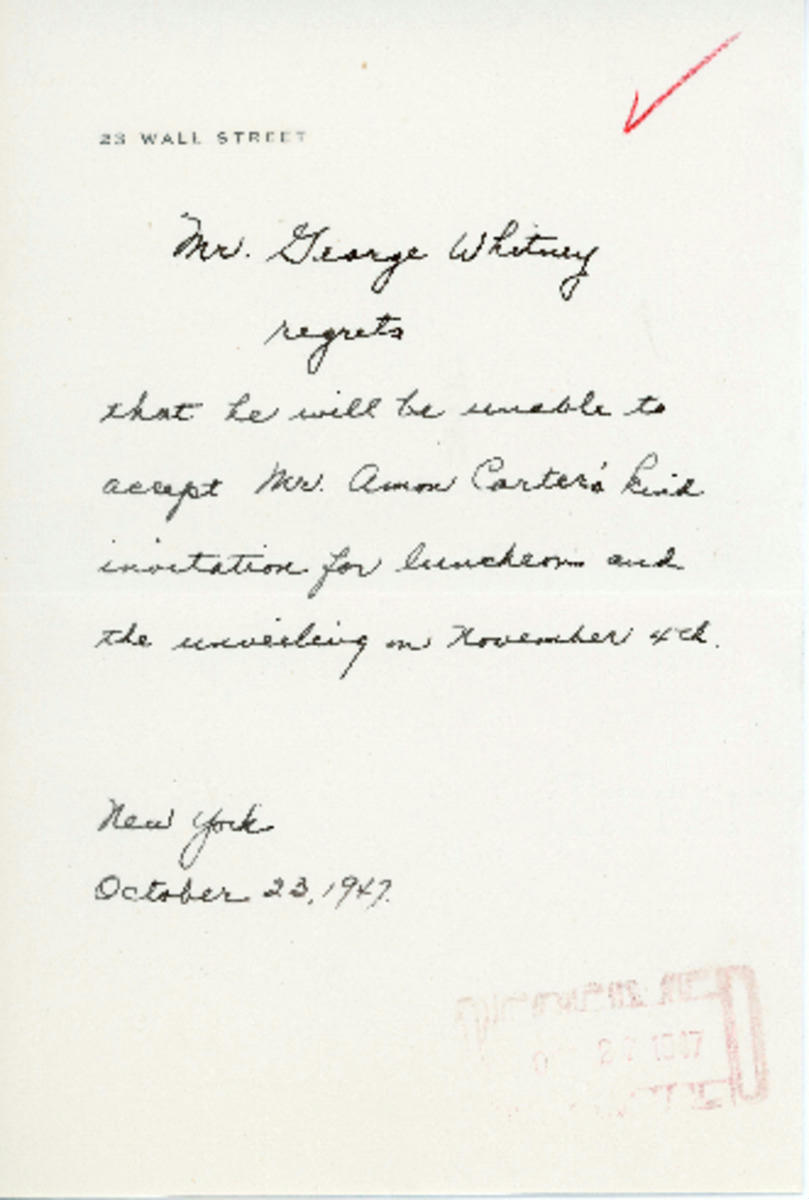 23 WALL STREET
Mr. George Whitney
regrets
that he will be unable to
accept Mr. Amon Carter's kind
invitation for luncheon and
the unveiling on November 4th.
New York
October 23, 1947.
1947